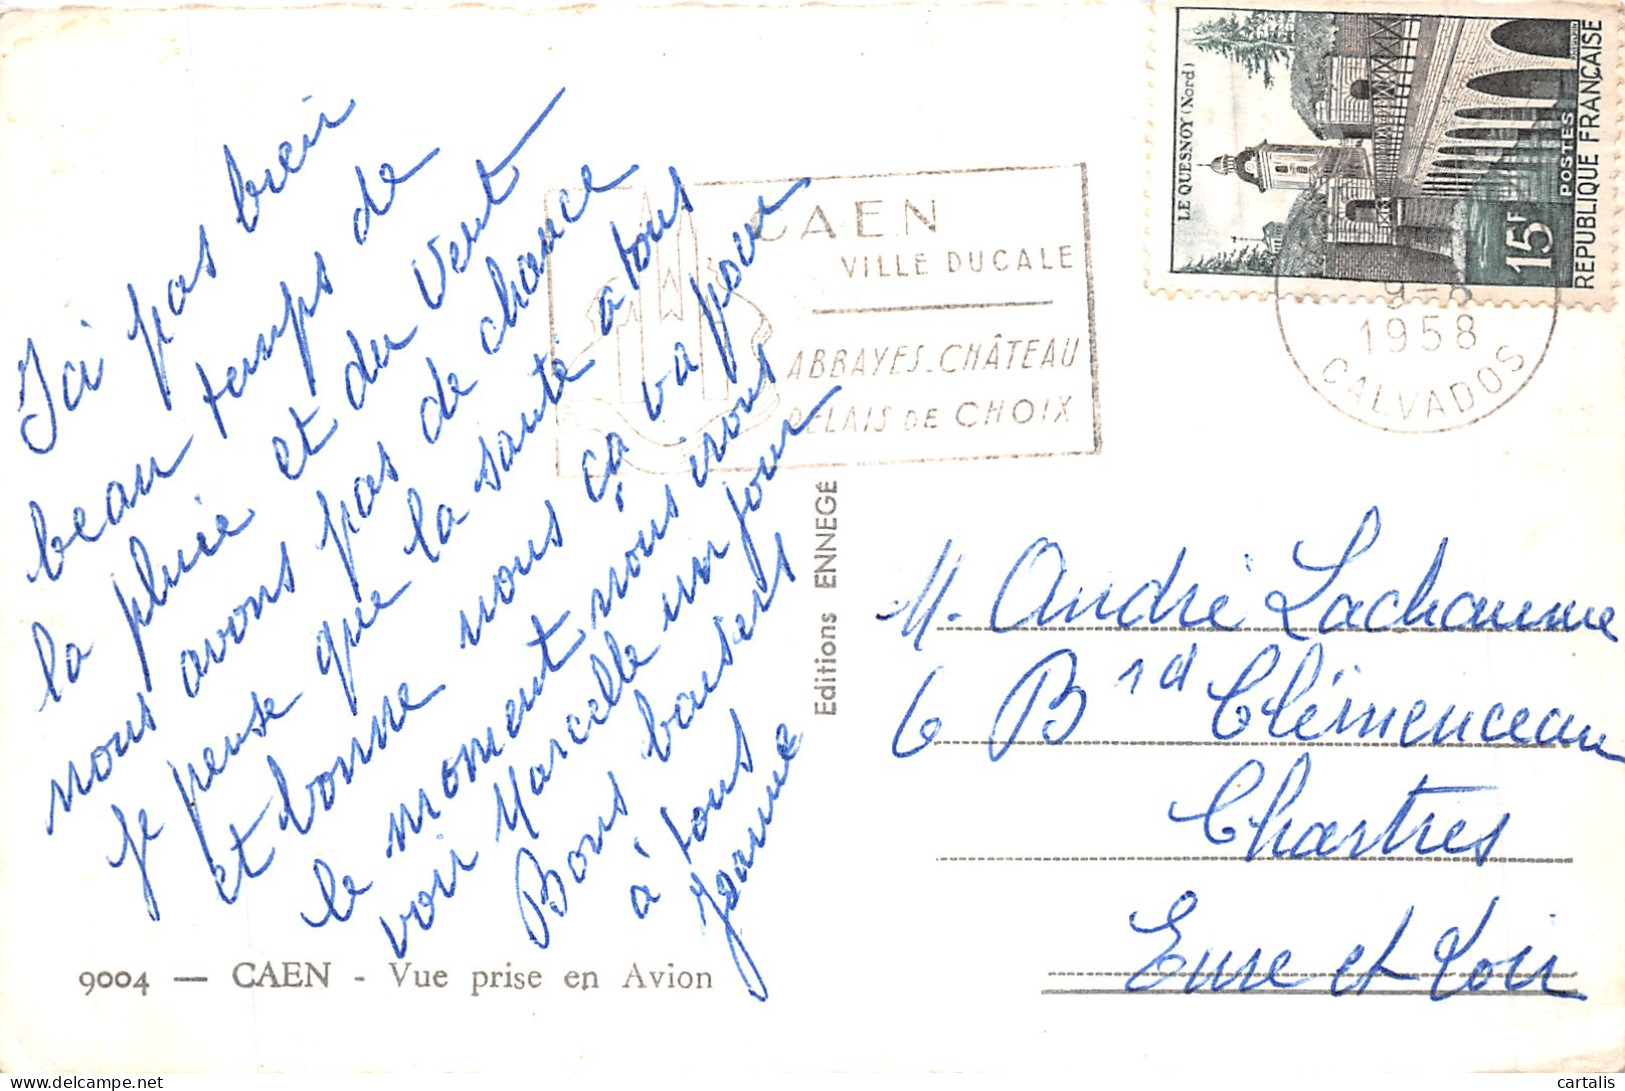 Ici pas bien
beau temps de
la pluie et du vent
nous avons pas de chance
je pense que la santé a tous
et bonne nous ça va pour
le moment nous irons
voir Marcelle un jour
Bons baisers
à tous
Jeanne
9004 — CAEN - Vue prise en Avion
Editions ENNEGÉ
CAEN
VILLE DUCALE
ABBAYES-CHÂTEAU
RELAIS DE CHOIX
LE QUESNOY (Nord)
15F
POSTES
REPUBLIQUE FRANÇAISE
1958
CALVADOS
M. André Lachaume
6 Brd Clémenceau
Chartres
Eure et Loir
cartalis